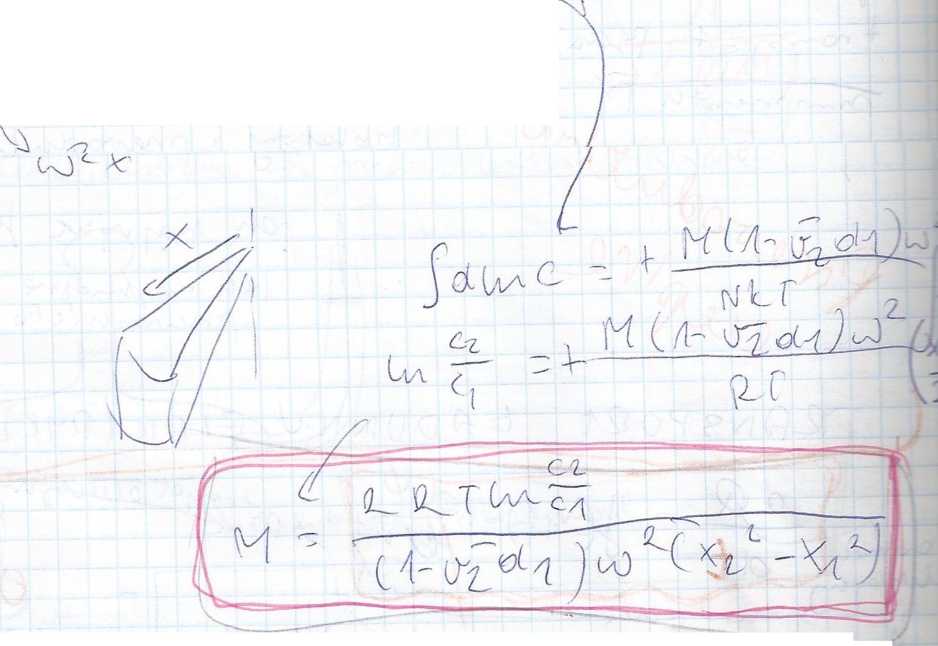 ω² x
x
∫ d ln c = + M (1 - v̄₂ d₁) ω² / NkT
ln c₂/c₁ = + M (1 - v̄₂ d₁) ω² / RT (
M = 2 R T ln c₂/c₁ / (1 - v̄₂ d₁) ω² (x₂² - x₁²)